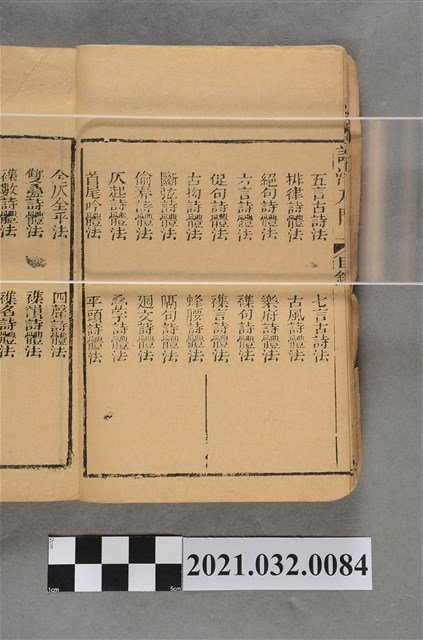 詩法入門 目錄
五言古詩法 七言古詩法
排律詩體法 古風詩體法
絕句詩體法 樂府詩體法
六言詩體法 襍句詩體法
促句詩體法 襍言詩體法
古拗詩體法 蜂腰詩體法
斷弦詩體法 隔句詩體法
偷春詩體法 廻文詩體法
仄起詩體法 疊字詩體法
首尾吟體法 平頭詩體法
全仄全平法 四聲詩體法
雙疊詩體法 襍韻詩體法
襍數詩體法 襍名詩體法
2cm
1cm 5cm
2021.032.0084